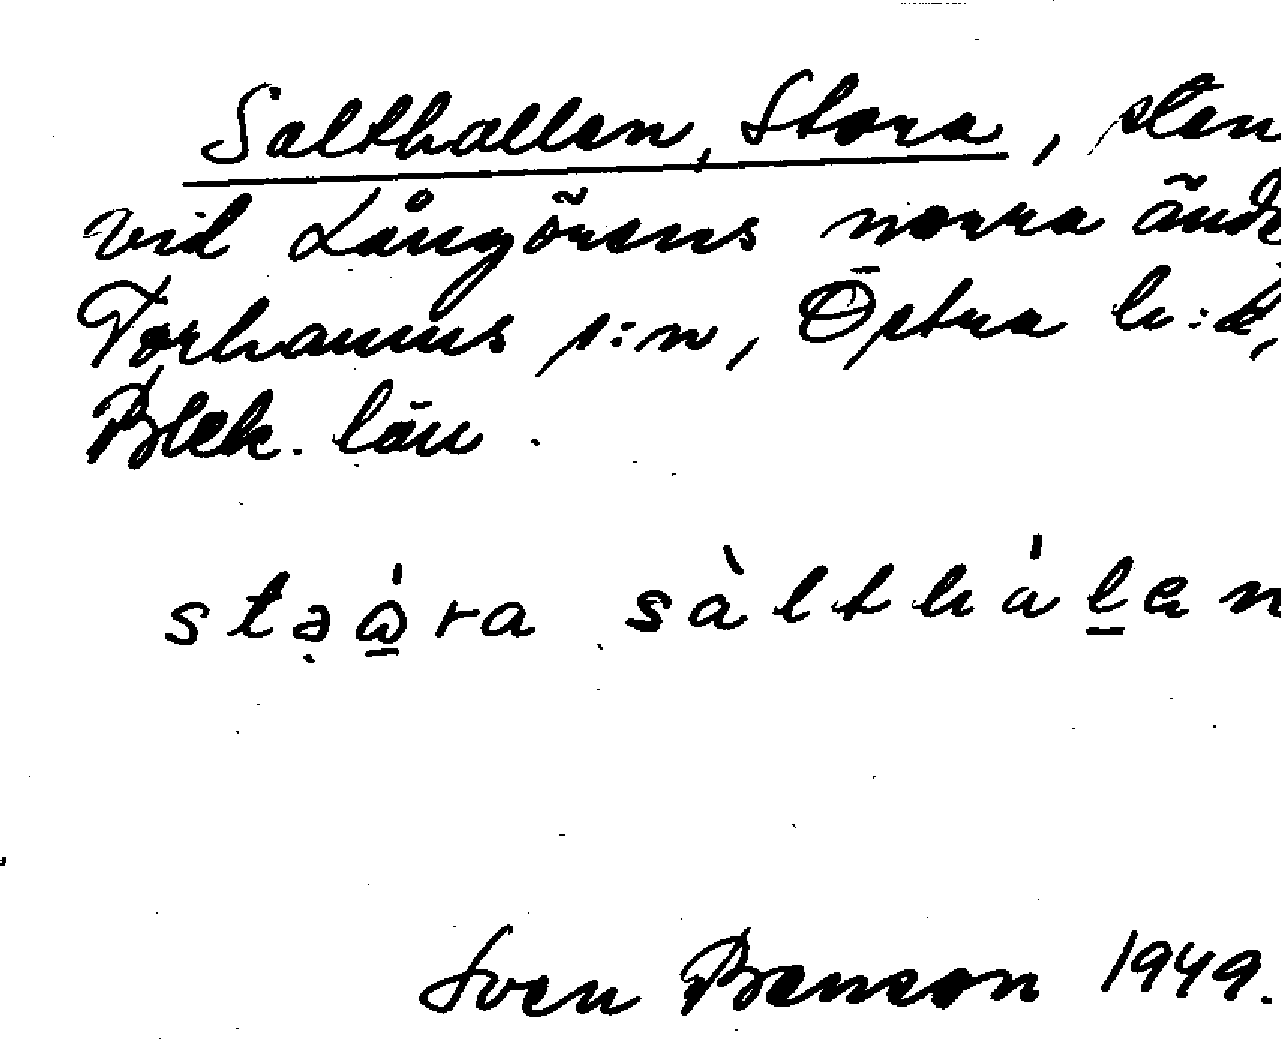 Salthallen, Stora, sten
vid Långörens norra änd
Torhamns s:n, Östra h:d,
Blek. län.
sàlthálen
Sven Benson 1949.